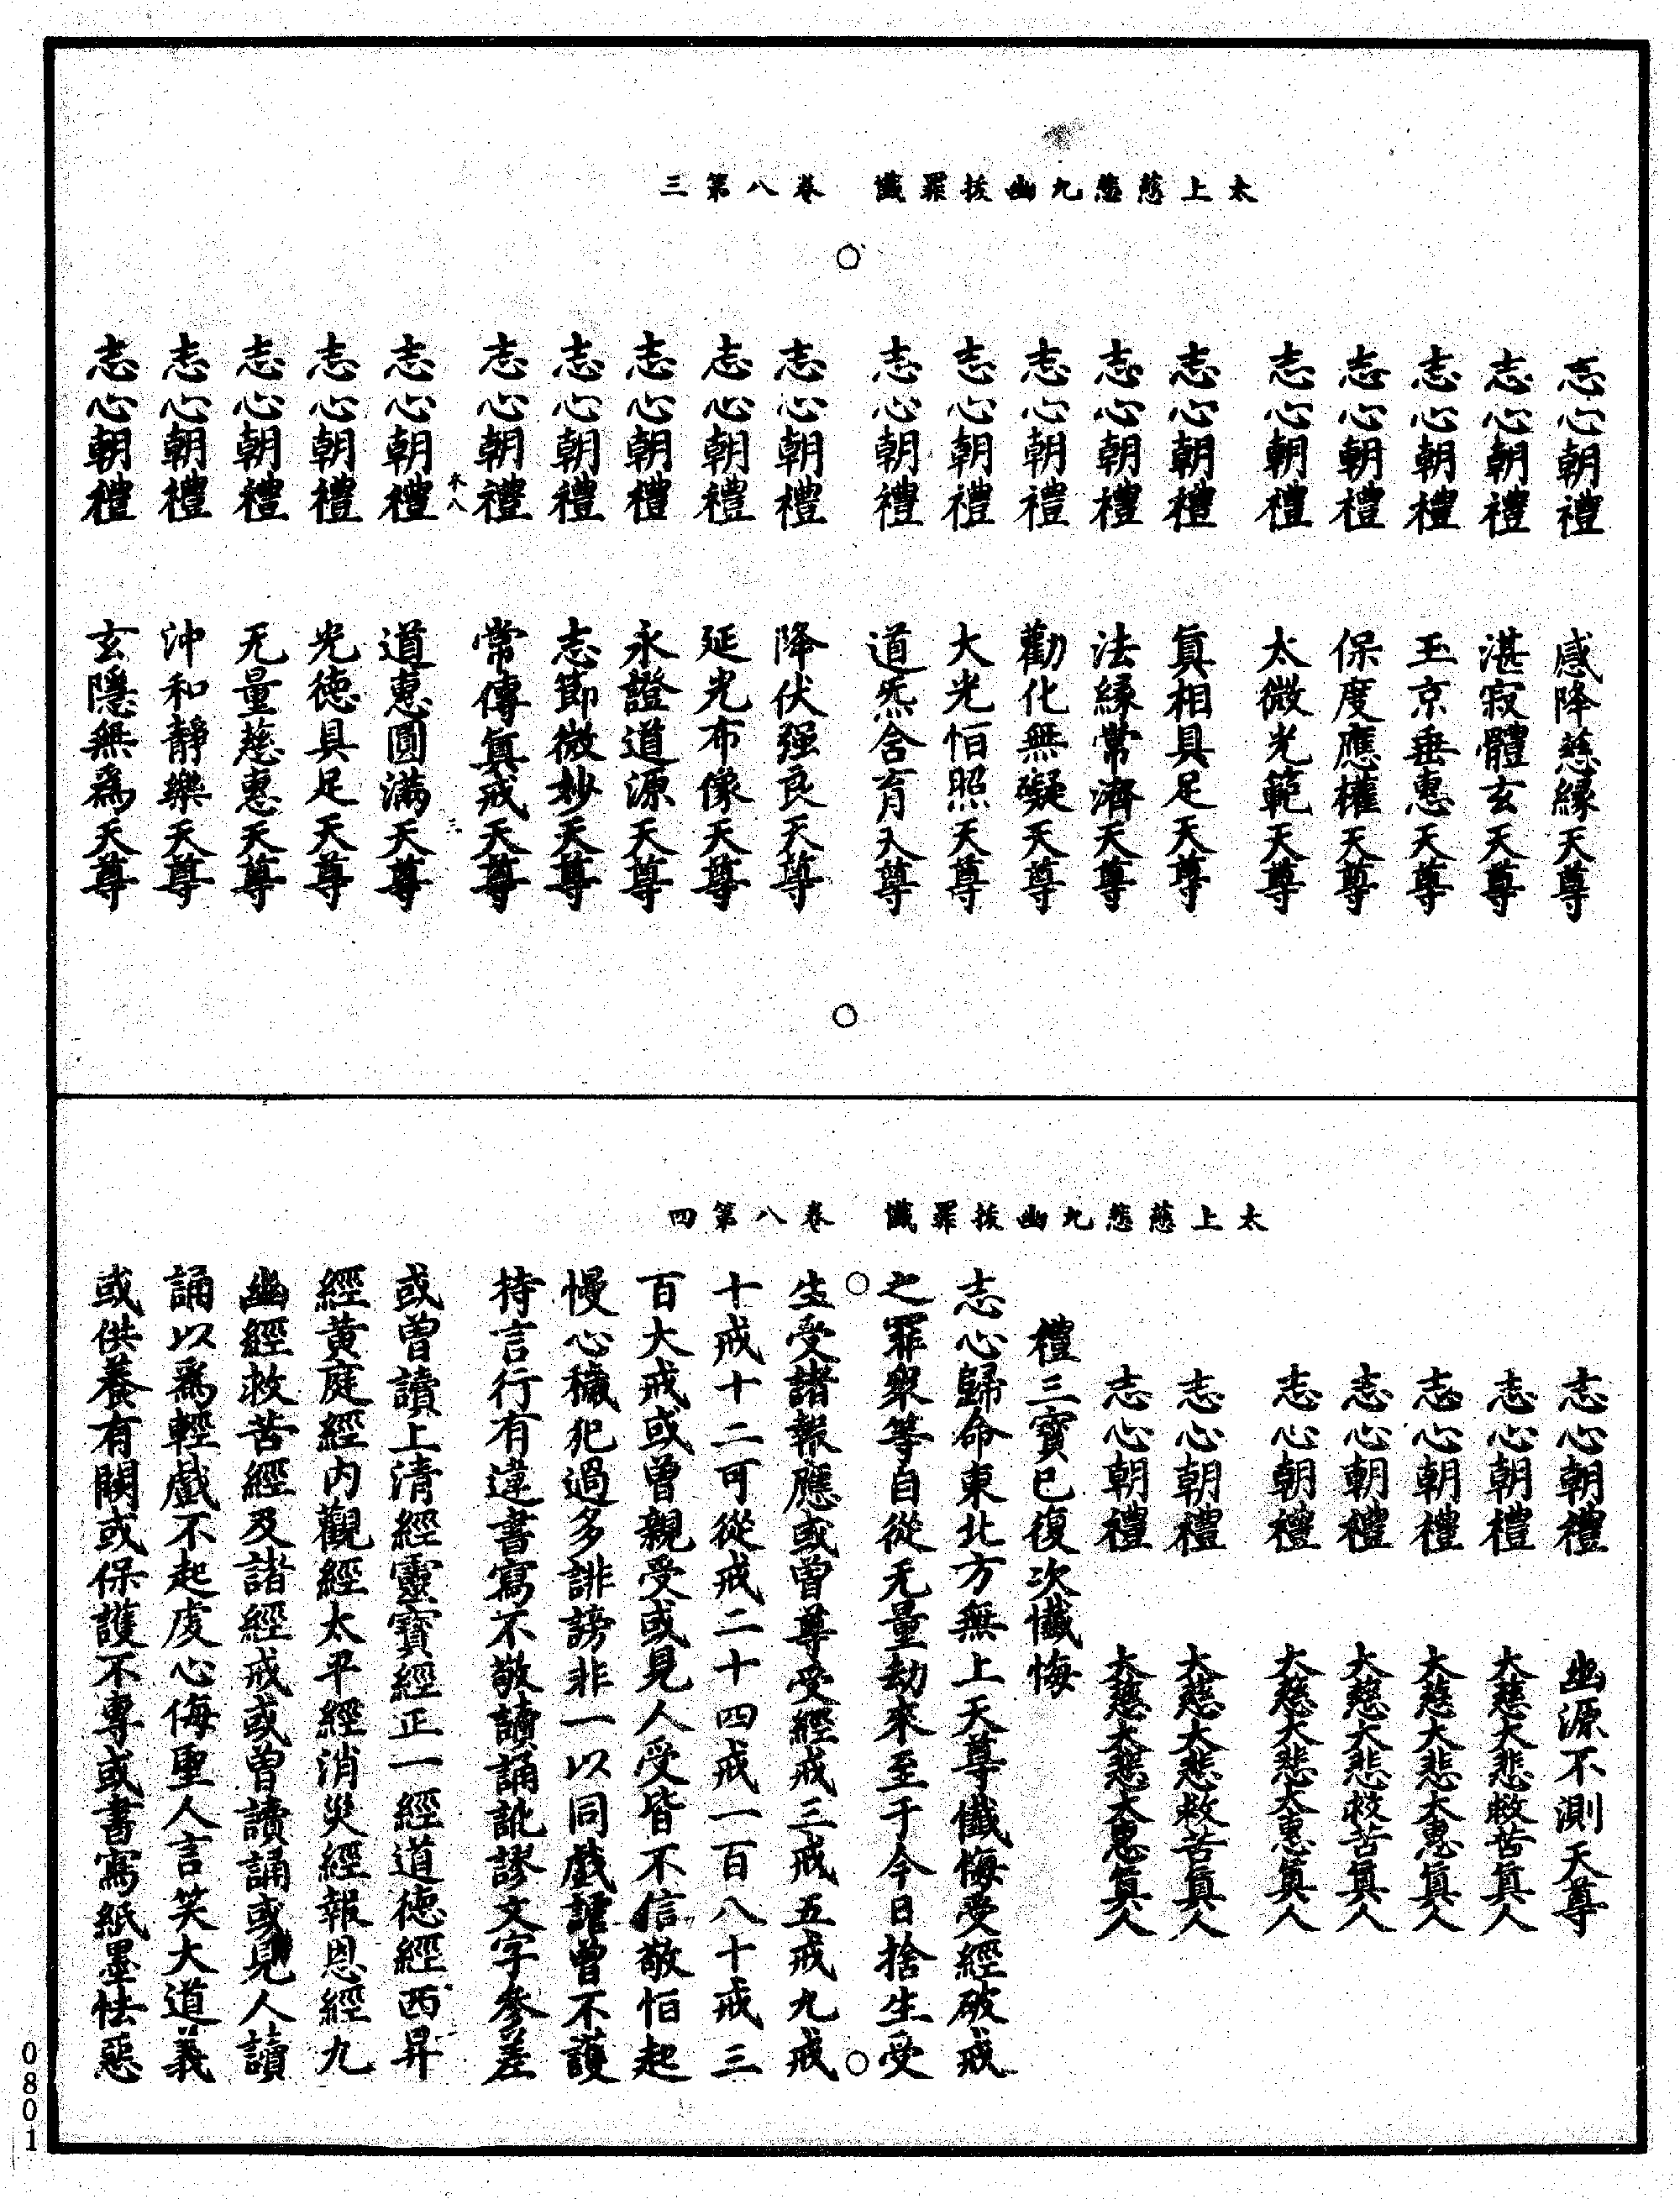 太上慈悲九幽拔罪懺　卷八第三
志心朝禮　感降慈緣天尊
志心朝禮　湛寂體玄天尊
志心朝禮　玉京垂惠天尊
志心朝禮　保度應權天尊
志心朝禮　太微光範天尊
志心朝禮　真相具足天尊
志心朝禮　法緣常濟天尊
志心朝禮　勸化無礙天尊
志心朝禮　大光怕照天尊
志心朝禮　道炁含育天尊
志心朝禮　降伏强良天尊
志心朝禮　延光布像天尊
志心朝禮　永證道源天尊
志心朝禮　志節微妙天尊
志心朝禮　常傳真戒天尊
志心朝禮　道惠圓滿天尊
志心朝禮　光德具足天尊
志心朝禮　无量慈惠天尊
志心朝禮　沖和靜樂天尊
志心朝禮　玄隱無爲天尊
太上慈悲九幽拔罪懺　卷八第四
志心朝禮　幽源不測天尊
志心朝禮　大慈大悲救苦真人
志心朝禮　大慈大悲大惠真人
志心朝禮　大慈大悲救苦真人
志心朝禮　大慈大悲大惠真人
志心朝禮　大慈大悲救苦真人
志心朝禮　大慈大悲大惠真人
禮三寶已復次懺悔
志心歸命東北方無上天尊懺悔受經破戒
之罪衆等自從无量劫來至于今日捨生受
生受諸報應或曾尊受經戒三戒五戒九戒
十戒十二可從戒二十四戒一百八十戒三
百大戒或曾親受或見人受皆不信敬怕起
慢心穢犯過多誹謗非一以同戲謔曾不護
持言行有違書寫不敬讀誦訛謬文字參差
或曾讀上清經靈寶經正一經道德經西昇
經黃庭經內觀經太平經消災經報恩經九
幽經救苦經及諸經戒或曾讀誦或見人讀
誦以爲輕戲不起虔心侮聖人言笑大道義
或供養有闕或保護不專或書寫紙墨怯惡
0801